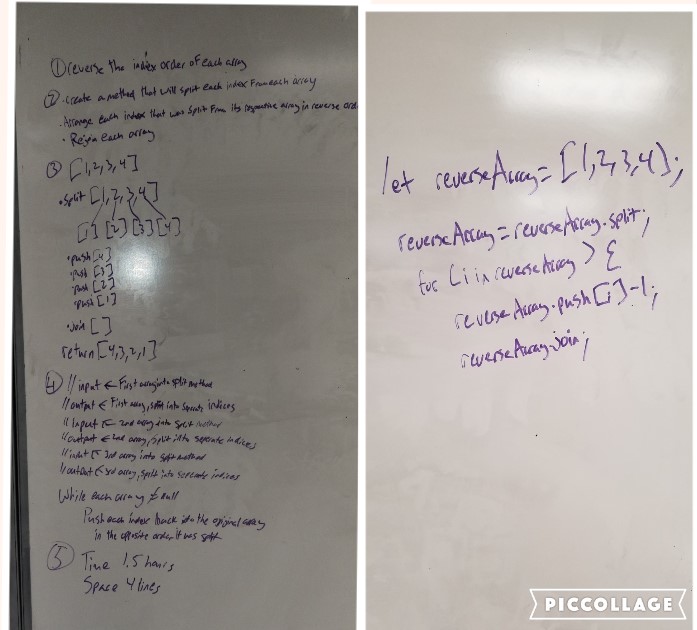 ① reverse the index order of each array
② • create a method that will split each index From each array
• Arrange each index that was split From its respective array in reverse orde
• Rejoin each array
③ [1,2,3,4]
• split [1,2,3,4]
[1] [2] [3] [4]
• push [4]
• push [3]
• push [2]
• push [1]
• join [ ]
return [4,3,2,1]
④ // input ← First array into split method
// output ← First array, split into seperate indices
// Input ← 2nd array into split method
// output ← 2nd array, split into seperate indices
// input ← 3rd array into split method
// output ← 3rd array, split into seperate indices
While each array ≠ null
Push each index back into the original array
in the opposite order it was split
⑤ Time 1.5 hours
Space 4 lines
let reverseArray = [1,2,3,4);
reverseArray = reverseArray.split;
for [i in reverseArray > {
reverseArray.push[i]-1;
reverseArray.join;
PICCOLLAGE